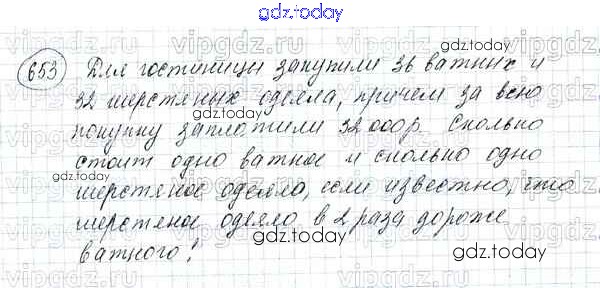 gdz.today
653 Для гостиницы закупили 36 ватных и
32 шерстяных одеяла, причем за всю
покупку заплатили 32 000 р. Сколько
стоит одно ватное и сколько одно
шерстяное одеяло, если известно, что
шерстяное одеяло в 2 раза дороже
ватного?
gdz.today